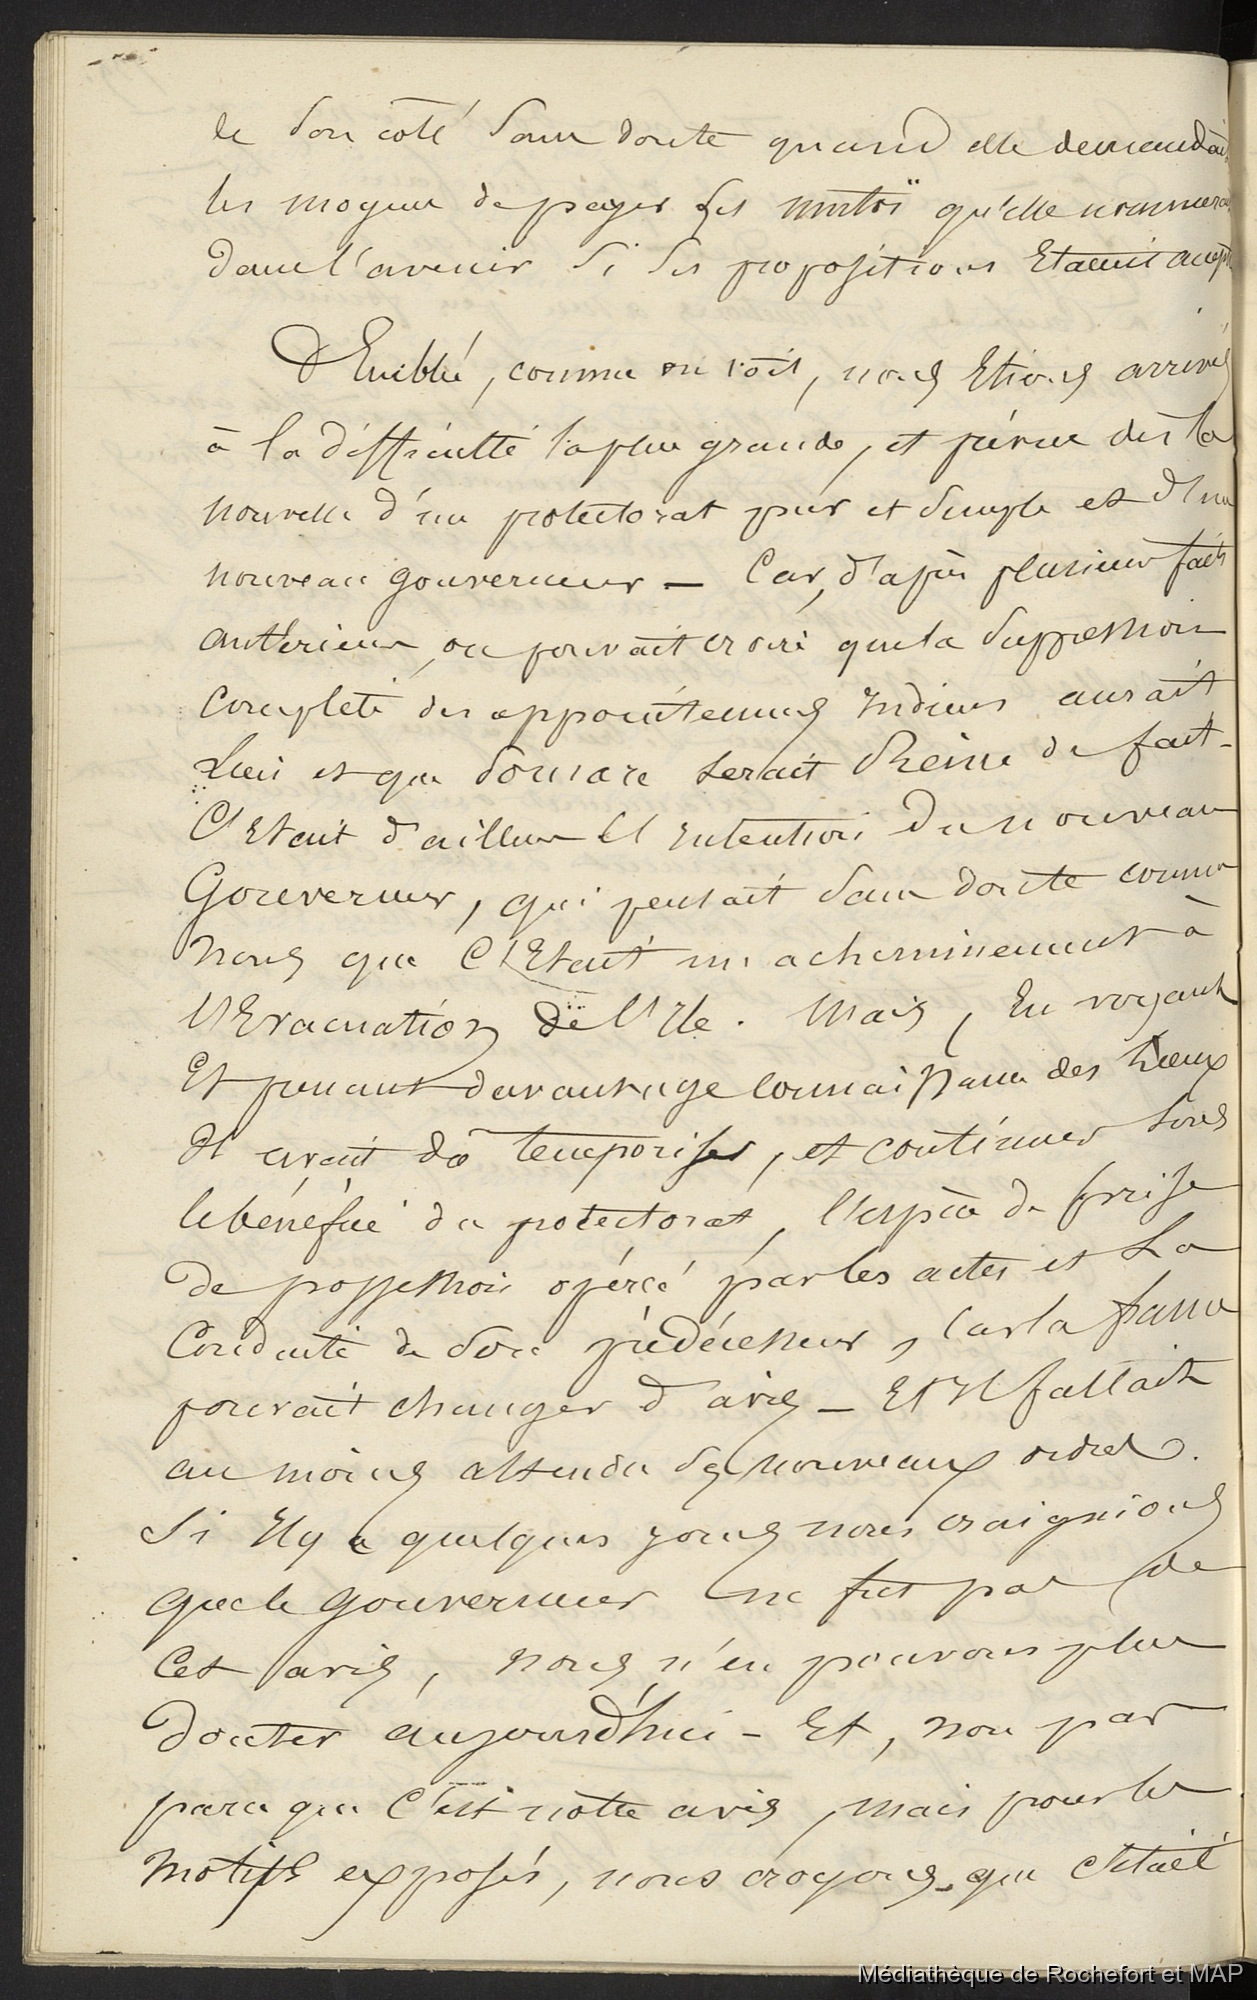 de son coté sans doute quand elle demandait
les moyens de payer les mutoï qu'elle nommera
dans l'avenir si ses propositions Etaient accept
D'Emblée, comme on voit, nous Etions arrivés
à la difficulté la plus grande, et prévue dès la
nouvelle d'un protectorat pur et simple et d'un
nouveau gouverneur — Car, d'après plusieurs faits
antérieurs, on pouvait croire que la suppression
complète des appointemens Indiens aurait
Lieu et que Pomare serait Reine de fait -
C'Etait d'ailleurs l'Intention du nouveau
Gouverneur, qui pensait sans doute comme
nous que C'Etait un acheminement à
l'Evacuation de l'Ile. Mais, En voyant
Et prenant davantage connaissance des Lieux
Il avait dû temporiser, et continuer sous
le bénéfice du protectorat, l'espèce de prise
de possession opérée par les actes et La
Conduite de son prédécesseur, Car la france
pouvait changer d'avis — Et Il fallait
au moins attendre de nouveaux ordres.
Si Il y a quelques jours nous craignions
que le gouverneur ne fut pas de
Cet avis, nous n'en pouvons plus
douter aujourd'hui - Et, non par
parce que C'est notre avis, mais pour les
motifs exposés, nous croyons que c'était
Médiathèque de Rochefort et MAP